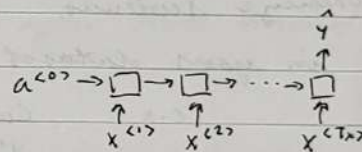 ŷ
a<0> → □ → □ → ... → □
x<1> x<2> x<Tx>